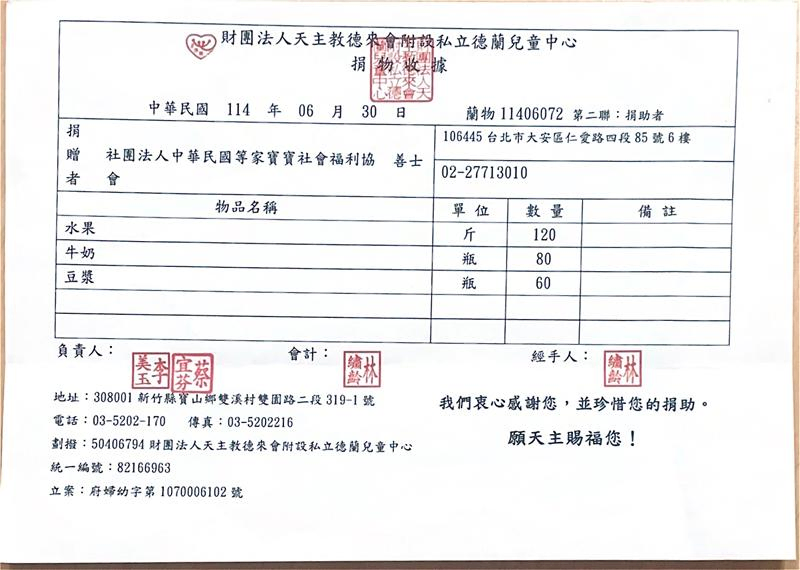 財團法人天主教德來會附設私立德蘭兒童中心
捐物收據
中華民國 114 年 06 月 30 日 蘭物 11406072 第二聯：捐助者
捐贈者 社團法人中華民國等家寶寶社會福利協會 善士
106445 台北市大安區仁愛路四段 85 號 6 樓
02-27713010
物品名稱 單位 數量 備註
水果 斤 120
牛奶 瓶 80
豆漿 瓶 60
負責人： 李美玉 蔡宜芬 會計： 林繡齡 經手人： 林繡齡
地址：308001 新竹縣寶山鄉雙溪村雙園路二段 319-1 號
電話：03-5202-170 傳真：03-5202216
劃撥：50406794 財團法人天主教德來會附設私立德蘭兒童中心
統一編號：82166963
立案：府婦幼字第 1070006102 號
我們衷心感謝您，並珍惜您的捐助。
願天主賜福您！